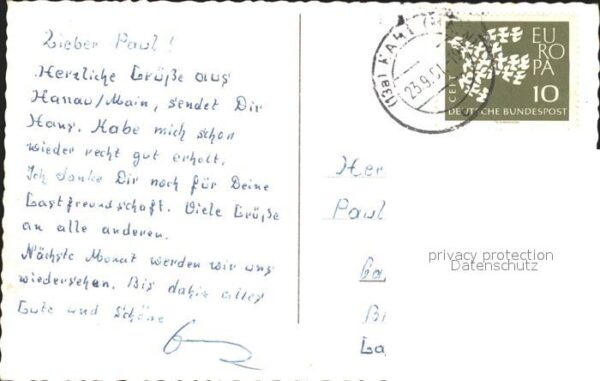 Lieber Paul!
Herzliche Grüße aus
Hanau/Main, sendet Dir
Hans. Habe mich schon
wieder recht gut erholt.
Ich danke Dir noch für Deine
Gastfreundschaft. Viele Grüße
an alle anderen.
Nächste Monat werden wir uns
wiedersehen. Bis dahin alles
Gute und schöne
(13a) KAHL
23.9.61
CEPT
EUROPA
10
DEUTSCHE BUNDESPOST
Her
Paul
privacy protection
Datenschutz